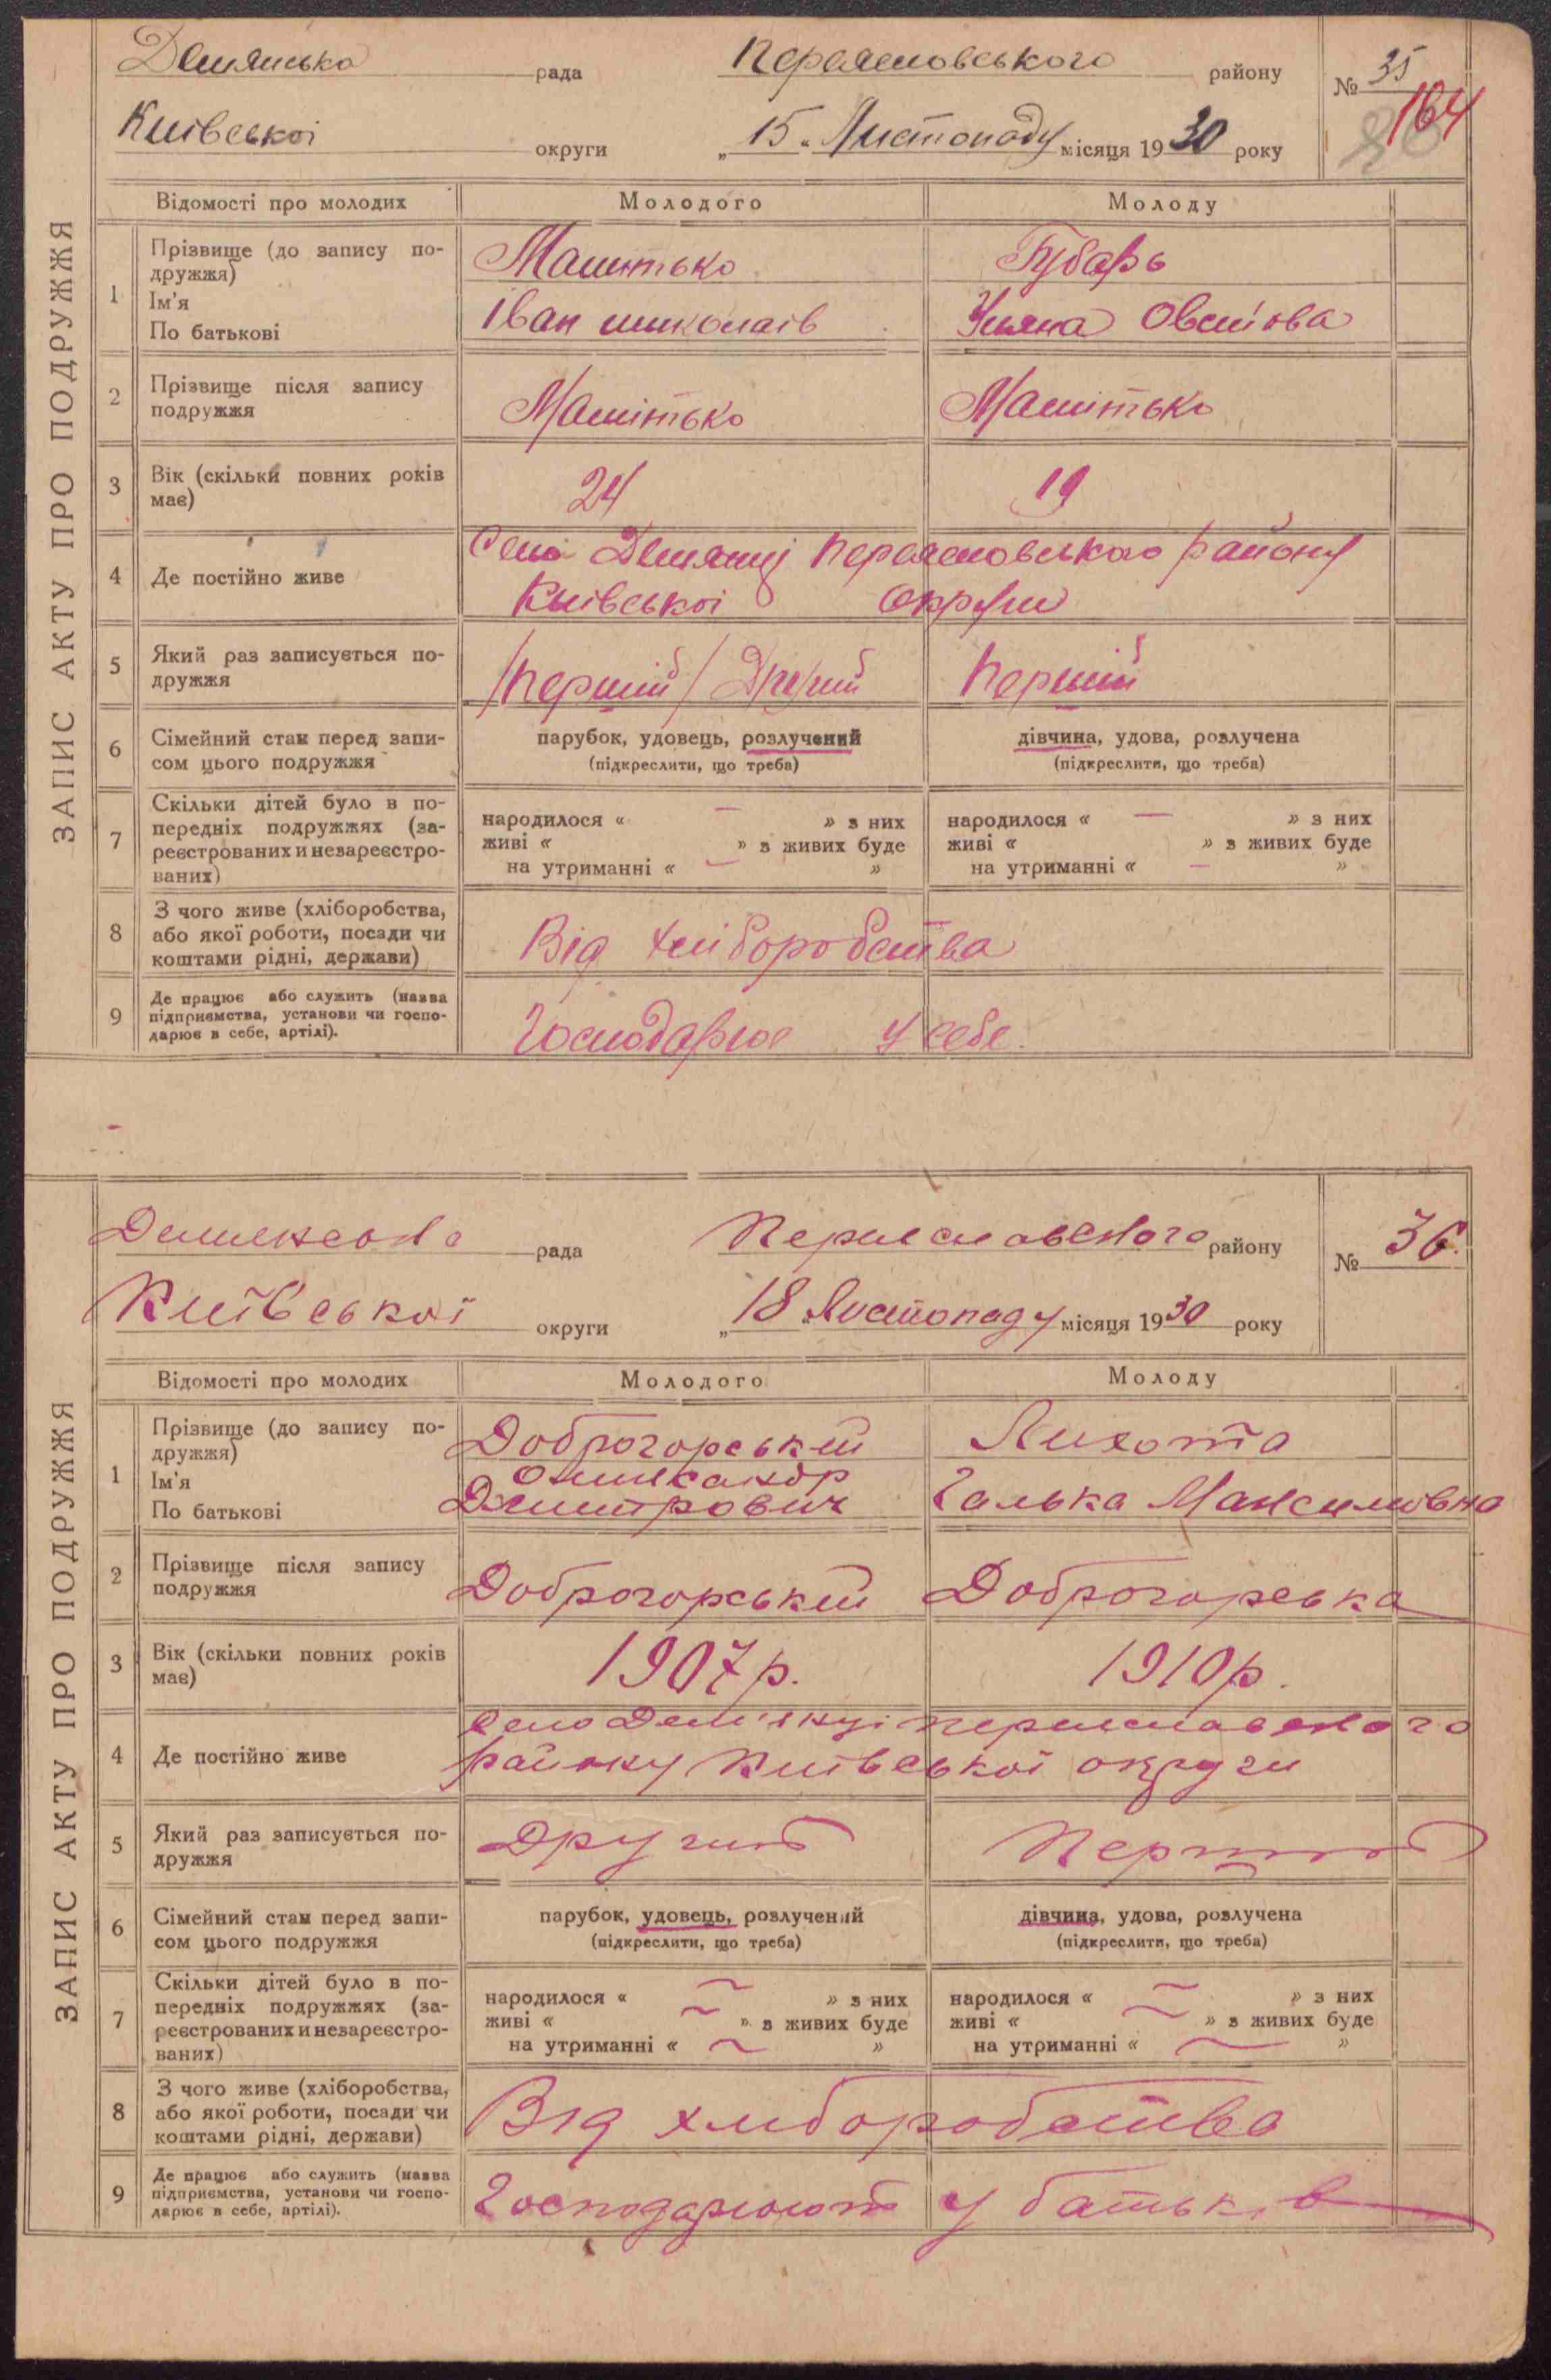 Демянська рада Переясловського району № 35
164
Київської округи „15" Листопаду місяця 1930 року
ЗАПИС АКТУ ПРО ПОДРУЖЖЯ
Відомості про молодих Молодого Молоду
1 Прізвище (до запису по-
дружжя) Машитько Губарь
Ім'я
По батькові Іван миколаів Уляна Овсіїова
2 Прізвище після запису
подружжя Машітько Машітько
3 Вік (скільки повних років
має) 24 19
4 Де постійно живе Село Демянці Переясловського району
Київської Округи
5 Який раз записується по-
дружжя /первий/ Другий Первий
6 Сімейний стан перед запи-
сом цього подружжя парубок, удовець, розлучений дівчина, удова, розлучена
(підкреслити, що треба) (підкреслити, що треба)
7 Скільки дітей було в по-
передніх подружжях (за-
реєстрованих и незареєстро-
ваних)
народилося « — » з них народилося « — » з них
живі « » з живих буде живі « » з живих буде
на утриманні « — » на утриманні « — »
8 З чого живе (хліборобства,
або якої роботи, посади чи
коштами рідні, держави) Від хліборобства
9 Де працює або служить (назва
підприємства, установи чи госпо-
дарює в себе, артілі). Господарює у себе.
рада Переяславского району № 36.
Київської округи „18" Листопаду місяця 1930 року
ЗАПИС АКТУ ПРО ПОДРУЖЖЯ
Відомості про молодих Молодого Молоду
1 Прізвище (до запису по-
дружжя) Доброгорський Лихота
Ім'я Олександр
По батькові Дмитрович Галька Максимовна
2 Прізвище після запису
подружжя Доброгорський Доброгорська
3 Вік (скільки повних років
має) 1907р. 1910р.
4 Де постійно живе Село Дем'янці переяславского
району Київської округи
5 Який раз записується по-
дружжя Другий Перший
6 Сімейний стан перед запи-
сом цього подружжя парубок, удовець, розлучений дівчина, удова, розлучена
(підкреслити, що треба) (підкреслити, що треба)
7 Скільки дітей було в по-
передніх подружжях (за-
реєстрованих и незареєстро-
ваних)
народилося « ~ » з них народилося « ~ » з них
живі « ~ » з живих буде живі « ~ » з живих буде
на утриманні « ~ » на утриманні « ~ »
8 З чого живе (хліборобства,
або якої роботи, посади чи
коштами рідні, держави) Від хліборобства
9 Де працює або служить (назва
підприємства, установи чи госпо-
дарює в себе, артілі). Господарюют у батьків